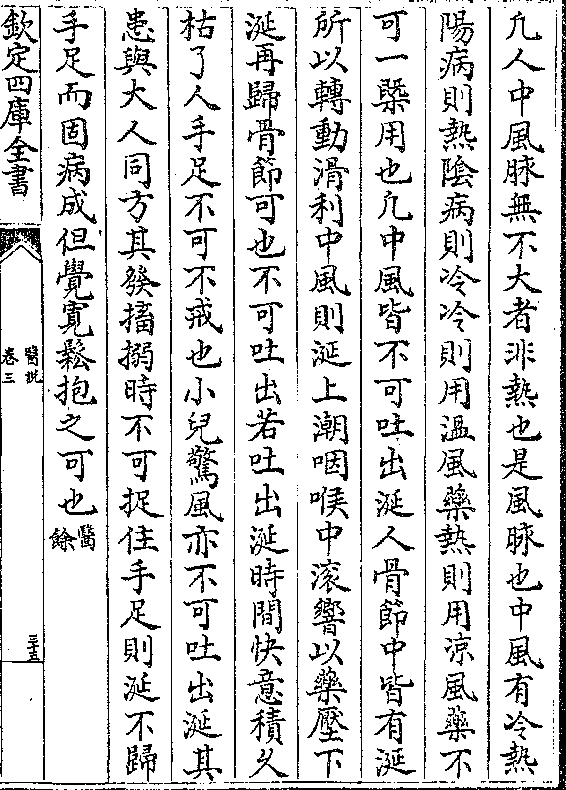 凢人中風脉無不大者非熱也是風脉也中風有冷熱
陽病則熱陰病則冷冷則用温風藥熱則用凉風藥不
可一槩用也凢中風皆不可吐出涎人骨節中皆有涎
所以轉動滑利中風則涎上潮咽喉中滚響以藥壓下
涎再歸骨節可也不可吐出若吐出涎時間快意積久
枯了人手足不可不戒也小兒驚風亦不可吐出涎其
患與大人同方其發搐搦時不可捉住手足則涎不歸
手足而固病成但覺寛鬆抱之可也醫餘
欽定四庫全書
醫説
卷三
三十五